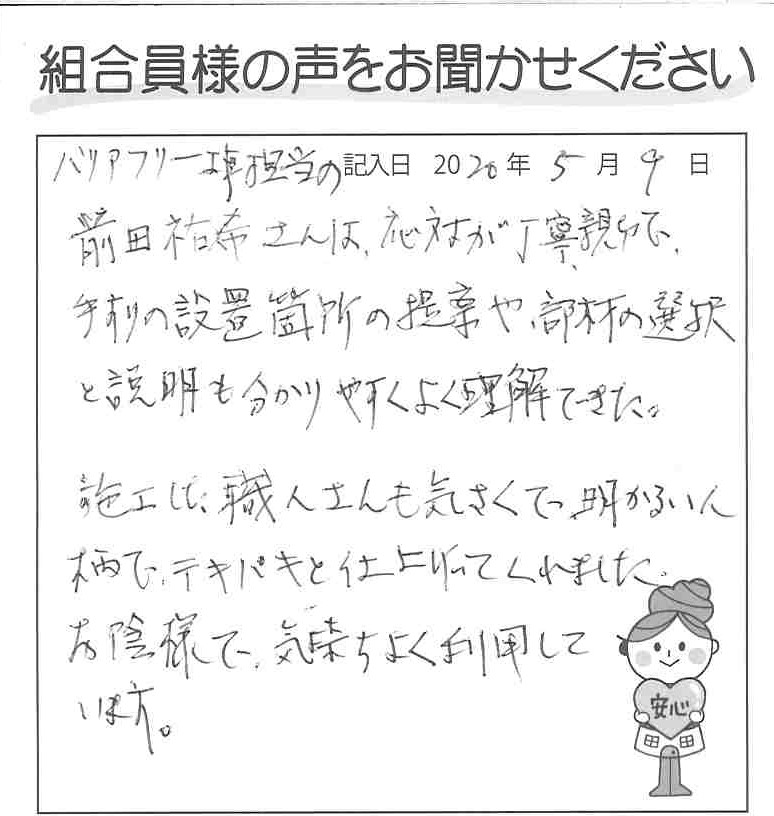 組合員様の声をお聞かせください
バリアフリー工事担当の 記入日 2020年 5月 9日
前田祐希さんは、応対が丁寧親切で、
手すりの設置箇所の提案や、部材の選択
と説明も分かりやすくよく理解できた。
施工は、職人さんも気さくで、明かるい人
柄で、テキパキと仕上げってくれました。
お陰様で、気持ちよく利用して
います。
安心